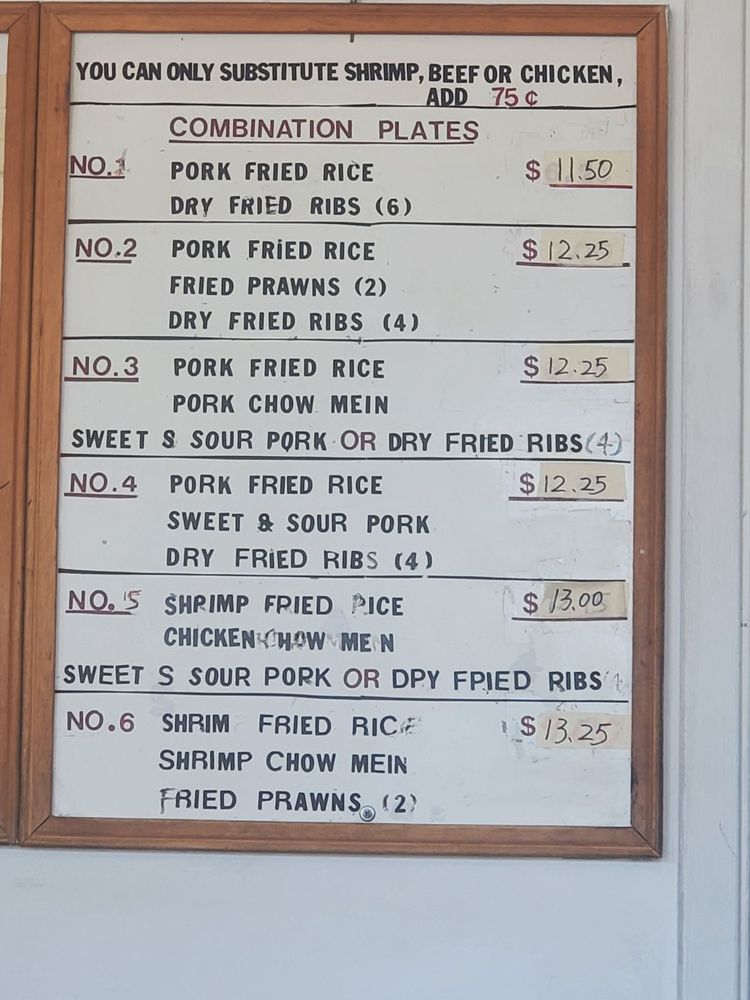 YOU CAN ONLY SUBSTITUTE SHRIMP, BEEF OR CHICKEN,
ADD 75¢
COMBINATION PLATES
NO.1 PORK FRIED RICE $ 11.50
DRY FRIED RIBS (6)
NO.2 PORK FRiED RICE $ 12.25
FRIED PRAWNS (2)
DRY FRIED RIBS (4)
NO.3 PORK FRIED RICE $ 12.25
PORK CHOW MEIN
SWEET S SOUR PORK OR DRY FRIED RIBS (4)
NO.4 PORK FRIED RICE $ 12.25
SWEET & SOUR PORK
DRY FRiED RIBS (4)
NO. 5 SHRIMP FRIED RICE $ 13.00
CHICKEN CHOW MEIN
SWEET S SOUR PORK OR DPY FPIED RIBS
NO.6 SHRIM FRIED RICE $ 13.25
SHRIMP CHOW MEIN
FRIED PRAWNS (2)